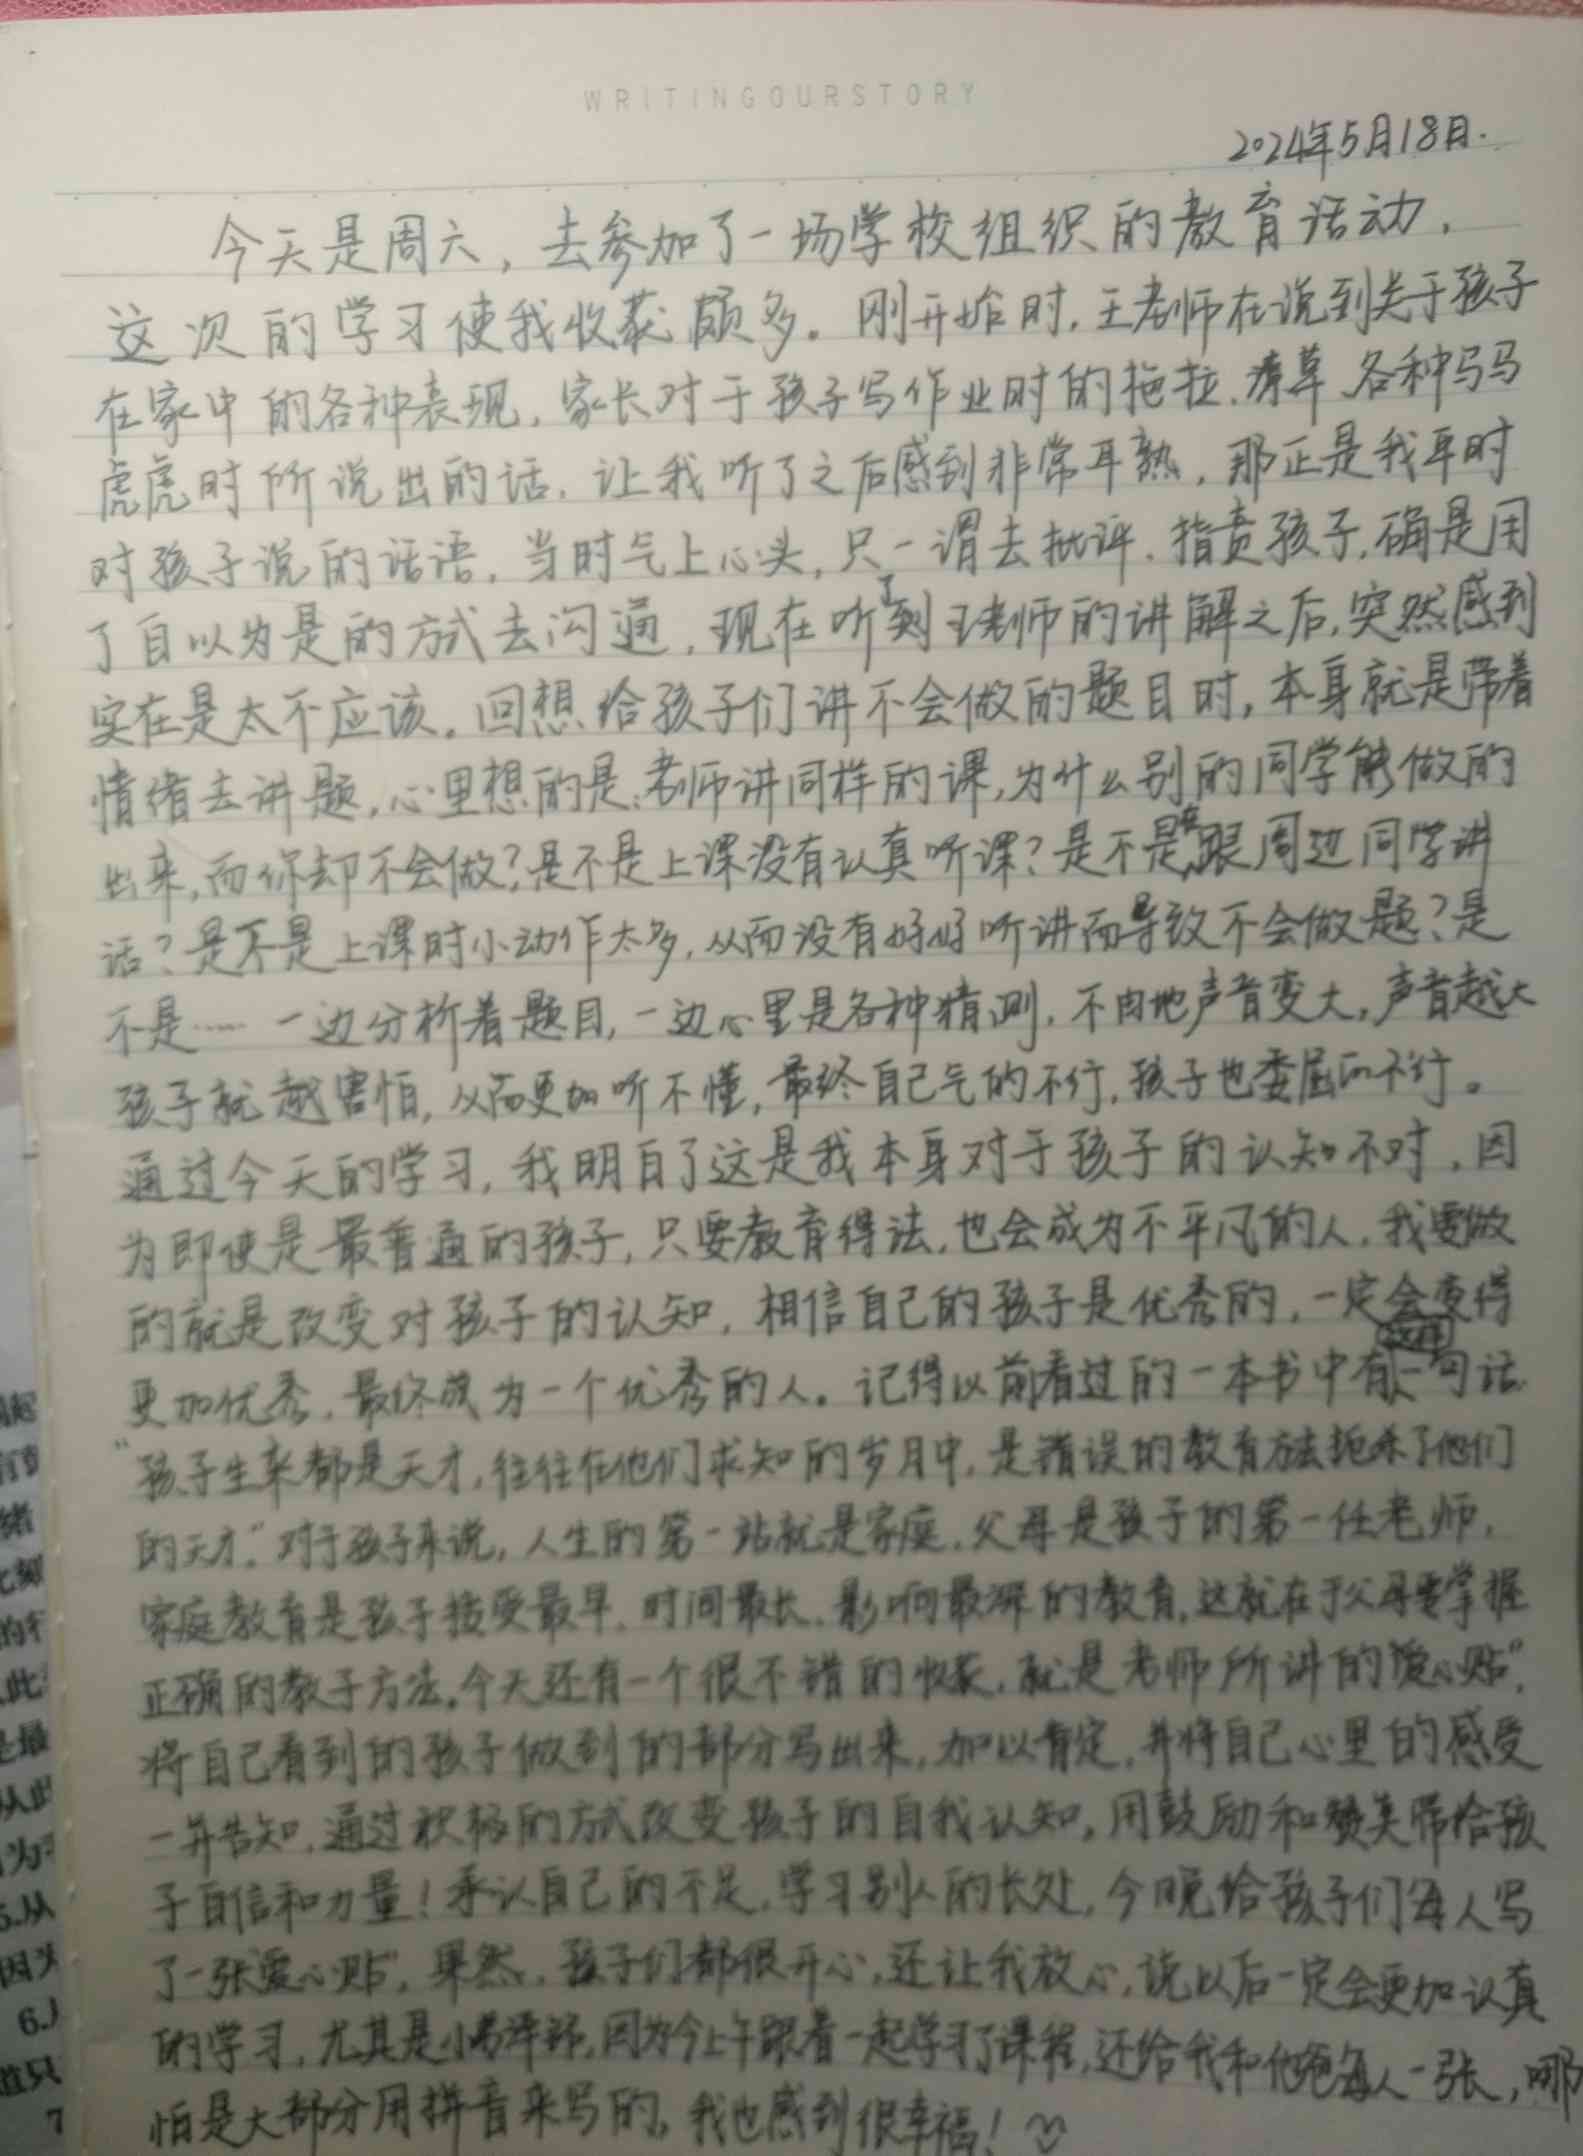 WRITINGOURSTORY
2024年5月18日.
今天是周六，去参加了一场学校组织的教育活动，
这次的学习使我收获颇多。刚开始时，王老师在说到关于孩子
在家中的各种表现，家长对于孩子写作业时的拖拉、潦草、各种马马
虎虎时所说出的话，让我听了之后感到非常耳熟，那正是我平时
对孩子说的话语，当时气上心头，只一谓去批评、指责孩子，确是用
了自以为是的方式去沟通，现在听了到王老师的讲解之后，突然感到
实在是太不应该。回想给孩子们讲不会做的题目时，本身就是带着
情绪去讲题，心里想的是：老师讲同样的课，为什么别的同学能做的
出来，而你却不会做？是不是上课没有认真听课？是不是在跟周边同学讲
话？是不是上课时小动作太多，从而没有好好听讲而导致不会做题？是
不是……一边分析着题目，一边心里是各种猜测，不由地声音变大，声音越大
孩子就越害怕，从而更加听不懂，最终自己气的不行，孩子也委屈的不行。
通过今天的学习，我明白了这是我本身对于孩子的认知不对，因
为即使是最普通的孩子，只要教育得法，也会成为不平凡的人，我要做
的就是改变对孩子的认知，相信自己的孩子是优秀的，一定会变得
更加优秀，最终成为一个优秀的人。记得以前看过的一本书中有一句话
“孩子生来都是天才，往往在他们求知的岁月中，是错误的教育方法扼杀了他们
的天才。”对于孩子来说，人生的第一站就是家庭，父母是孩子的第一任老师，
家庭教育是孩子接受最早、时间最长、影响最深的教育，这就在于父母要掌握
正确的教子方法。今天还有一个很不错的收获，就是老师所讲的“爱心贴”，
将自己看到的孩子做到的部分写出来，加以肯定，并将自己心里的感受
一并告知，通过积极的方式改变孩子的自我认知，用鼓励和赞美带给孩
子自信和力量！承认自己的不足，学习别人的长处，今晚给孩子们每人写
了一张“爱心贴”，果然，孩子们都很开心，还让我放心，说以后一定会更加认真
的学习，尤其是小，因为今上午跟着一起学习了课程，还给我和他爸每人一张，哪
怕是大部分用拼音来写的，我也感到很幸福！